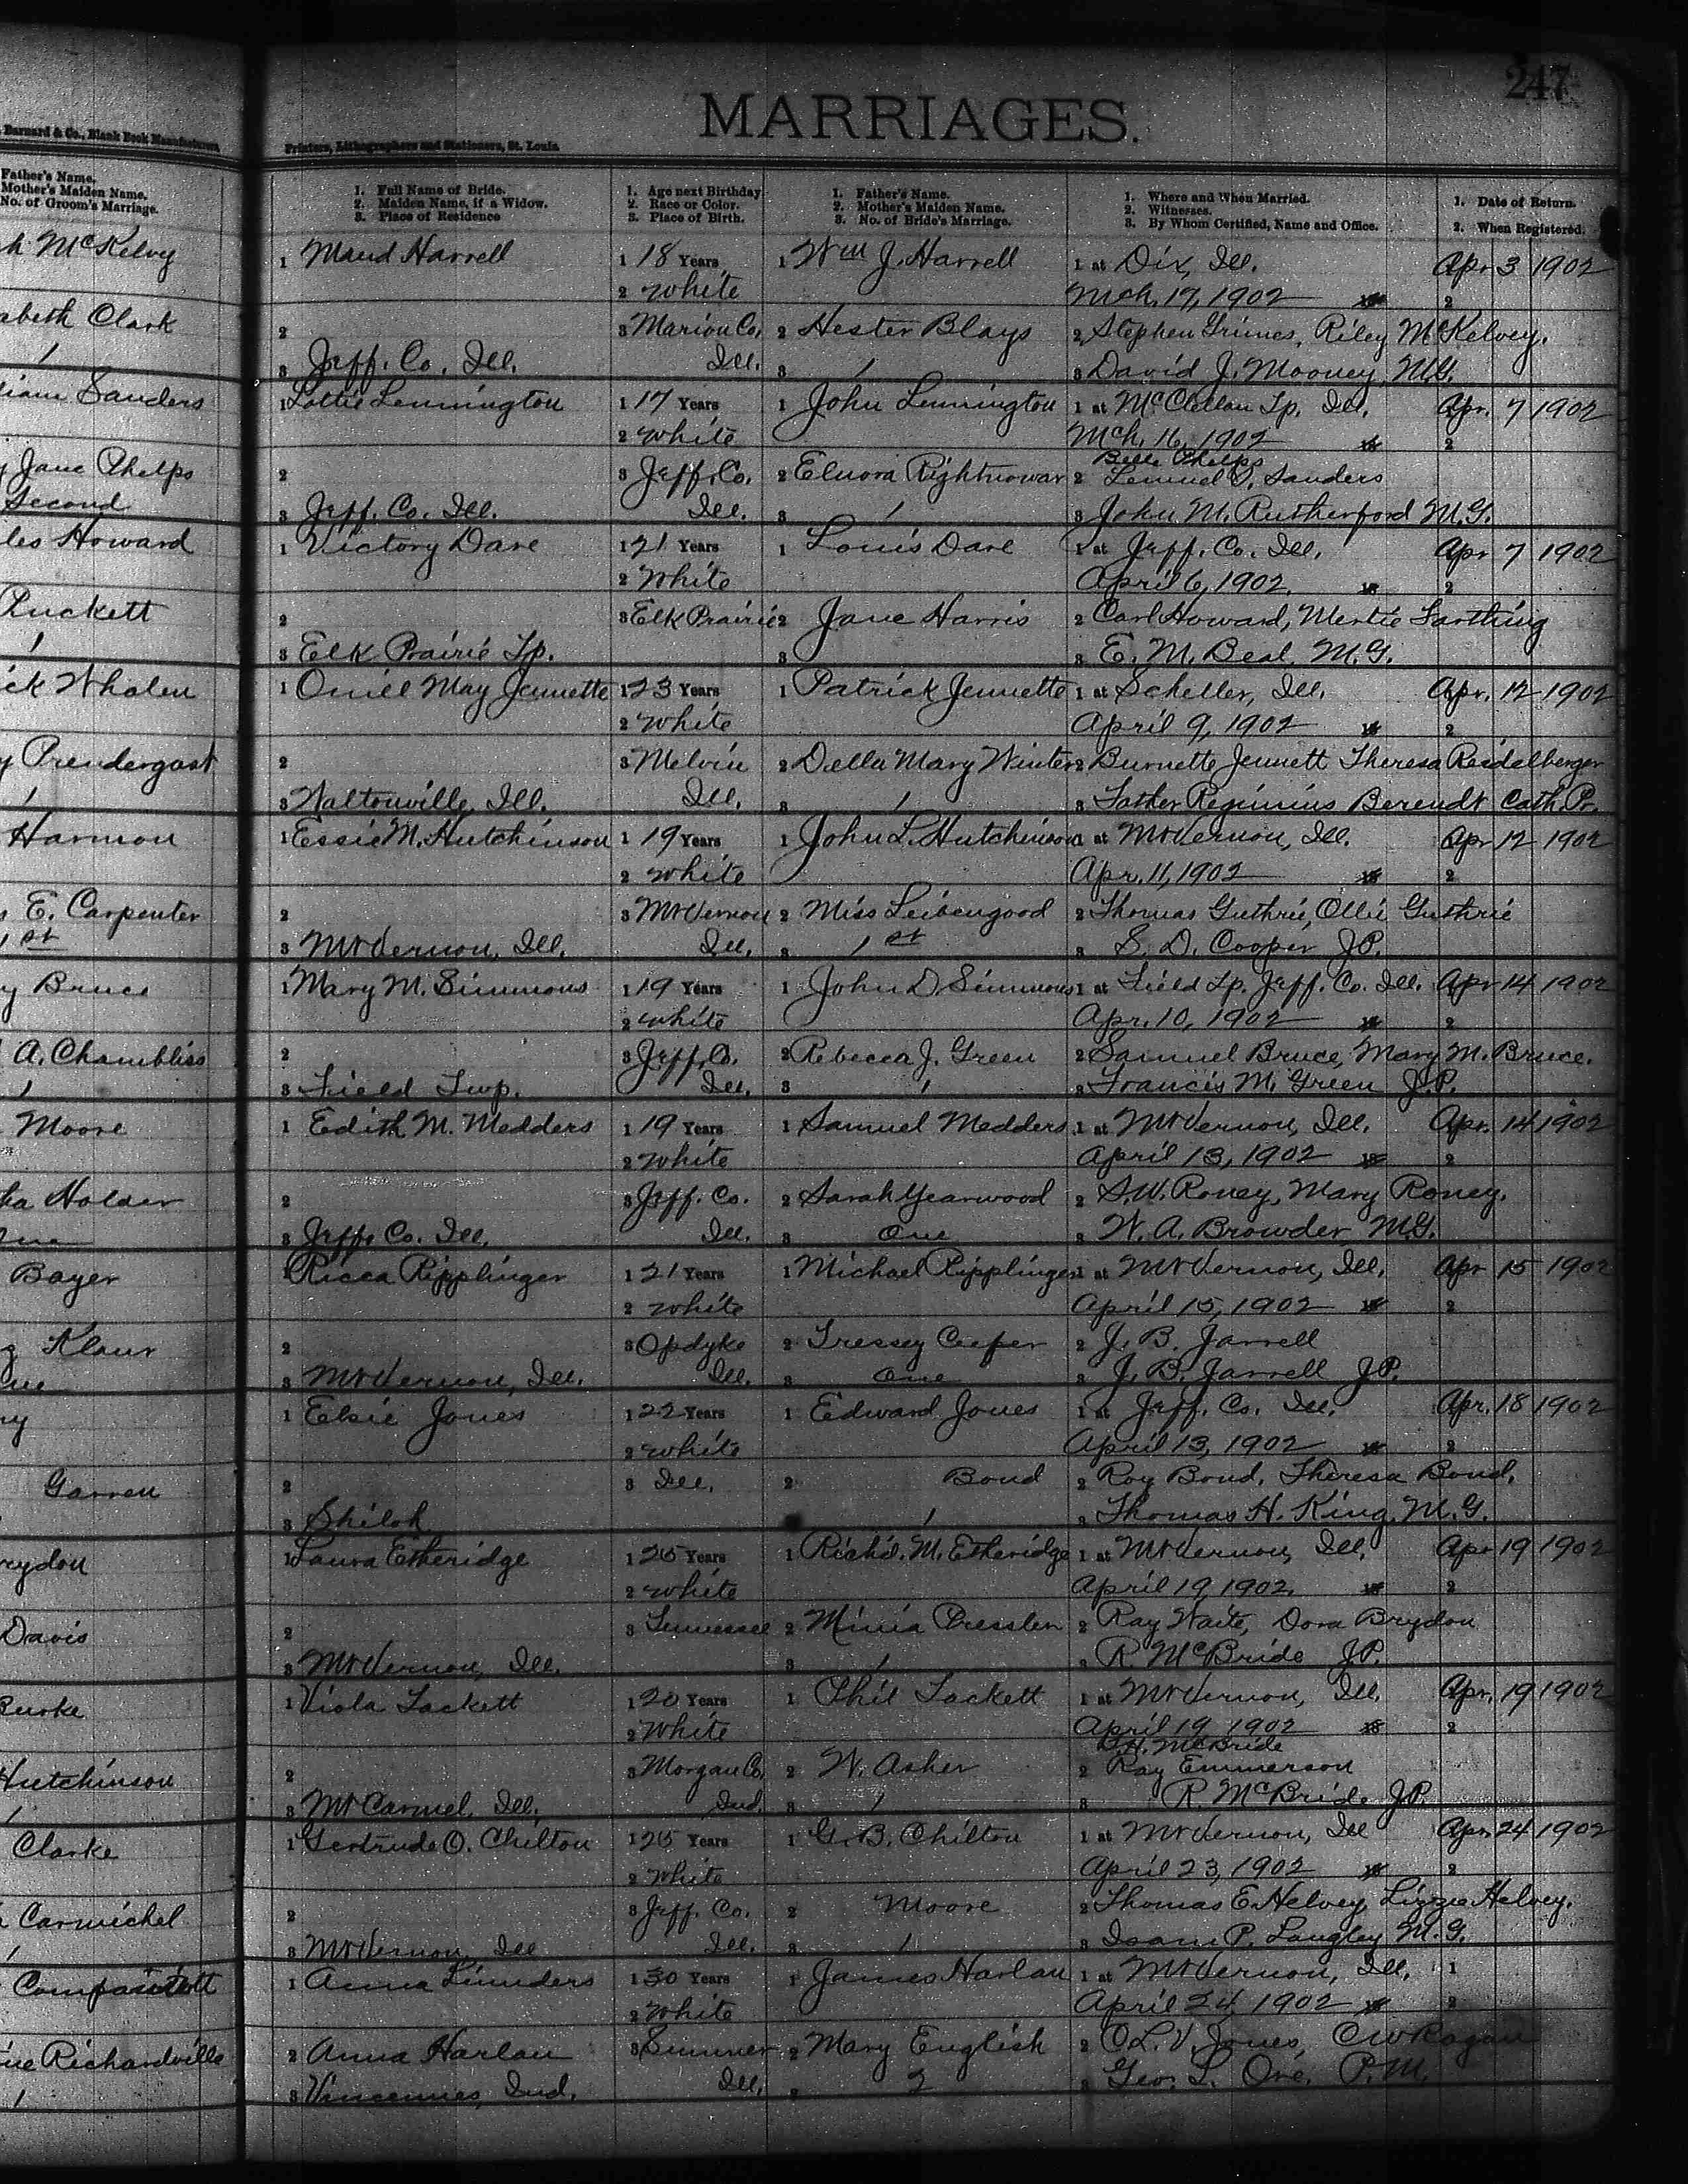 247
MARRIAGES.
Barnard & Co., Blank Book Manufacturers,
Printers, Lithographers and Stationers, St. Louis.
Father's Name.
Mother's Maiden Name.
No. of Groom's Marriage.
1. Full Name of Bride.
2. Maiden Name, if a Widow.
3. Place of Residence
1. Age next Birthday
2. Race or Color.
3. Place of Birth.
1. Father's Name.
2. Mother's Maiden Name.
3. No. of Bride's Marriage.
1. Where and When Married.
2. Witnesses.
3. By Whom Certified, Name and Office.
1. Date of Return.
2. When Registered.
h McKelvy 1 Maud Harrell 1 18 Years 1 Wm J. Harrell 1 at Dix, Ill. Apr 3 1902
2 White Mch. 17, 1902 2
abeth Clark 2 3 Marion Co, 2 Hester Blays 2 Stephen Grimes, Riley McKelvey.
1 3 Jeff. Co. Ill. Ill. 3 1 3 David J. Mooney, M.G.
liam Sanders 1 Lottie Lennington 1 17 Years 1 John Lennington 1 at McClellan Tp. Ill. Apr. 7 1902
2 White Mch. 16, 1902 2
Belle Phelps
y Jane Phelps 2 3 Jeff. Co. 2 Elnora Rightnowar 2 Lemuel S. Sanders
Second 3 Jeff. Co. Ill. Ill. 3 1 3 John M. Rutherford M.G.
les Howard 1 Victory Dare 1 21 Years 1 Louis Dare 1 at Jeff. Co. Ill. Apr 7 1902
2 White April 6, 1902. 2
Puckett 2 3 Elk Prairie 2 Jane Harris 2 Carl Howard, Mertie Farthing
1 3 Elk Prairie Tp. 3 3 E. M. Beal, M.G.
ck Whalen 1 Oniel May Jennette 1 23 Years 1 Patrick Jennette 1 at Scheller, Ill. Apr. 12 1902
2 White April 9, 1902 2
y Prendergast 2 3 Melvin 2 Della Mary Winter 2 Burnette Jennett Theresa Reidelberger
1 3 Waltonville, Ill. Ill. 3 1 3 Father Berendt Cath. Pr.
Harmon 1 Essie M. Hutchinson 1 19 Years 1 John L. Hutchinson 1 at Mt Vernon, Ill. Apr 12 1902
2 White Apr. 11, 1902 2
s E. Carpenter 2 3 Mt Vernon 2 Miss Leibengood 2 Thomas Guthrie, Ollie Guthrie
1st 3 Mt Vernon, Ill. Ill. 3 1st 3 S. D. Cooper J.P.
y Bruce 1 Mary M. Simmons 1 19 Years 1 John D Simmons 1 at Field Tp. Jeff. Co. Ill. Apr 14 1902
2 White Apr. 10, 1902 2
A. Chambliss 2 3 Jeff Co. 2 Rebecca J. Green 2 Samuel Bruce, Mary M. Bruce.
1 3 Field Twp. Ill. 3 1 3 Francis M. Green J.P.
Moore 1 Edith M. Medders 1 19 Years 1 Samuel Medders 1 at Mt Vernon, Ill. Apr. 14 1902
2 White April 13, 1902 2
ha Holder 2 3 Jeff. Co. 2 Sarah Yearwood 2 S.W. Roney, Mary Roney.
3 Jeff. Co. Ill. Ill. 3 One 3 W. A. Browder M.G.
Bayer 1 Ricca Ripplinger 1 21 Years 1 Michael Ripplinger 1 at Mt Vernon, Ill. Apr 15 1902
2 White April 15, 1902 2
Klaur 2 3 Opdyke 2 Tressey 2 J. B. Jarrell
3 Mt Vernon, Ill. Ill. 3 One 3 J. B. Jarrell J.P.
ry 1 Elsie Jones 1 22 Years 1 Edward Jones 1 at Jeff. Co. Ill. Apr. 18 1902
2 White April 13, 1902 2
Garren 2 3 Ill. 2 Bond 2 Roy Bond, Theresa Bond.
3 Shiloh 1 3 Thomas H. King, M.G.
rydon 1 Laura Etheridge 1 25 Years 1 Richd. M. Etheridge 1 at Mt Vernon, Ill. Apr 19 1902
2 White April 19, 1902. 2
Davis 2 3 Tennessee 2 Minia Presslen 2 Ray Waite, Dora Brydon
3 Mt Vernon, Ill. 3 1 3 R McBride J.P.
Burke 1 Viola Lackett 1 20 Years 1 Phil Lackett 1 at Mt Vernon, Ill. Apr. 19 1902
2 White April 19 1902 2
McBride
Hutchinson 2 3 Morgan Co, 2 W. Asher 2 Ray Emmerson
1 3 Mt Carmel, Ill. Ind. 3 1 3 R. McBride J.P.
Clarke 1 Gertrude O. Chilton 1 25 Years 1 G. B. Chilton 1 at Mt Vernon, Ill Apr. 24 1902
2 White April 23, 1902 2
Carmichel 2 3 Jeff. Co. 2 Moore 2 Thomas E. Helvey, Lizzie Helvey.
1 3 Mt Vernon, Ill Ill. 3 1 3 Isam P. Langley M.G.
1 Anna Linnders 1 30 Years 1 James Harlan 1 at Mt Vernon, Ill. 1
2 White April 24, 1902 2
ne Richardville 2 Anna Harlan 3 Sumner 2 Mary English 2 O.L.V. Jones, C W Ragan
1 3 Vincennes, Ind. Ill. 3 2 3 Geo. L. Ore, P.M.